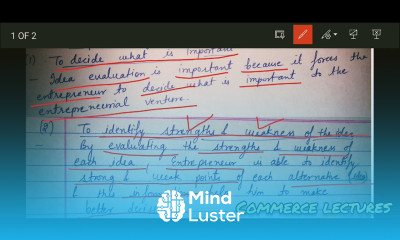 1 OF 2
(1) To decide what is important
- Idea evaluation is important because it forces the
entrepreneur to decide what is important to the
entrepreneurial venture.
(2) To identify strengths & weakness of the Idea
- By evaluating the strengths & weakness of
each idea, Entrepreneur is able to identify
strong & weak points of each alternative idea
& this him to make
better
Mind
Luster
COMMERCE LECTURES